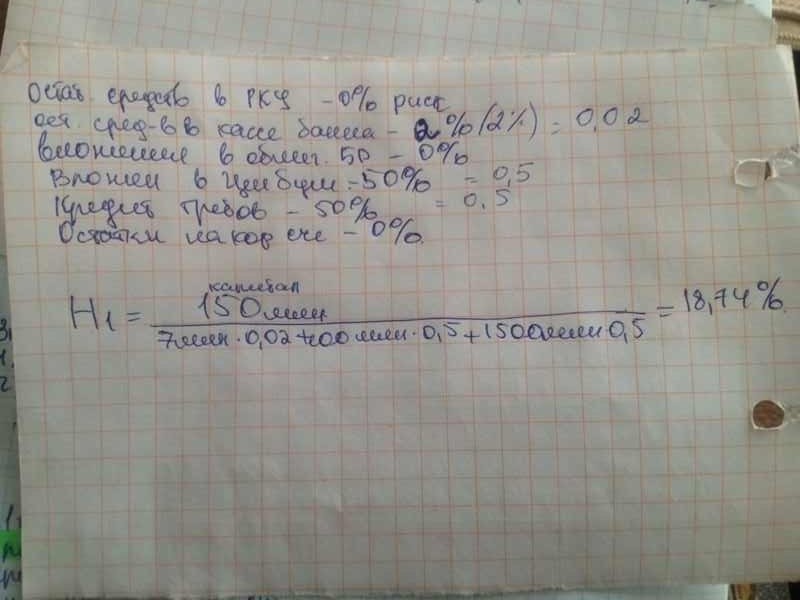 Остат. средств в РКЦ - 0% риск
ост. сред-в в кассе банка - 2% (2%) = 0,02
вложения в облиг. БР - 0%
Вложен в Цен бум. - 50% = 0,5
Кредит требов - 50% = 0,5
Остатки на кор сче - 0%.
капитал
H1 = 150 млн / 7 млн · 0,02 + 100 млн · 0,5 + 1500 млн 0,5 = 18,74%.